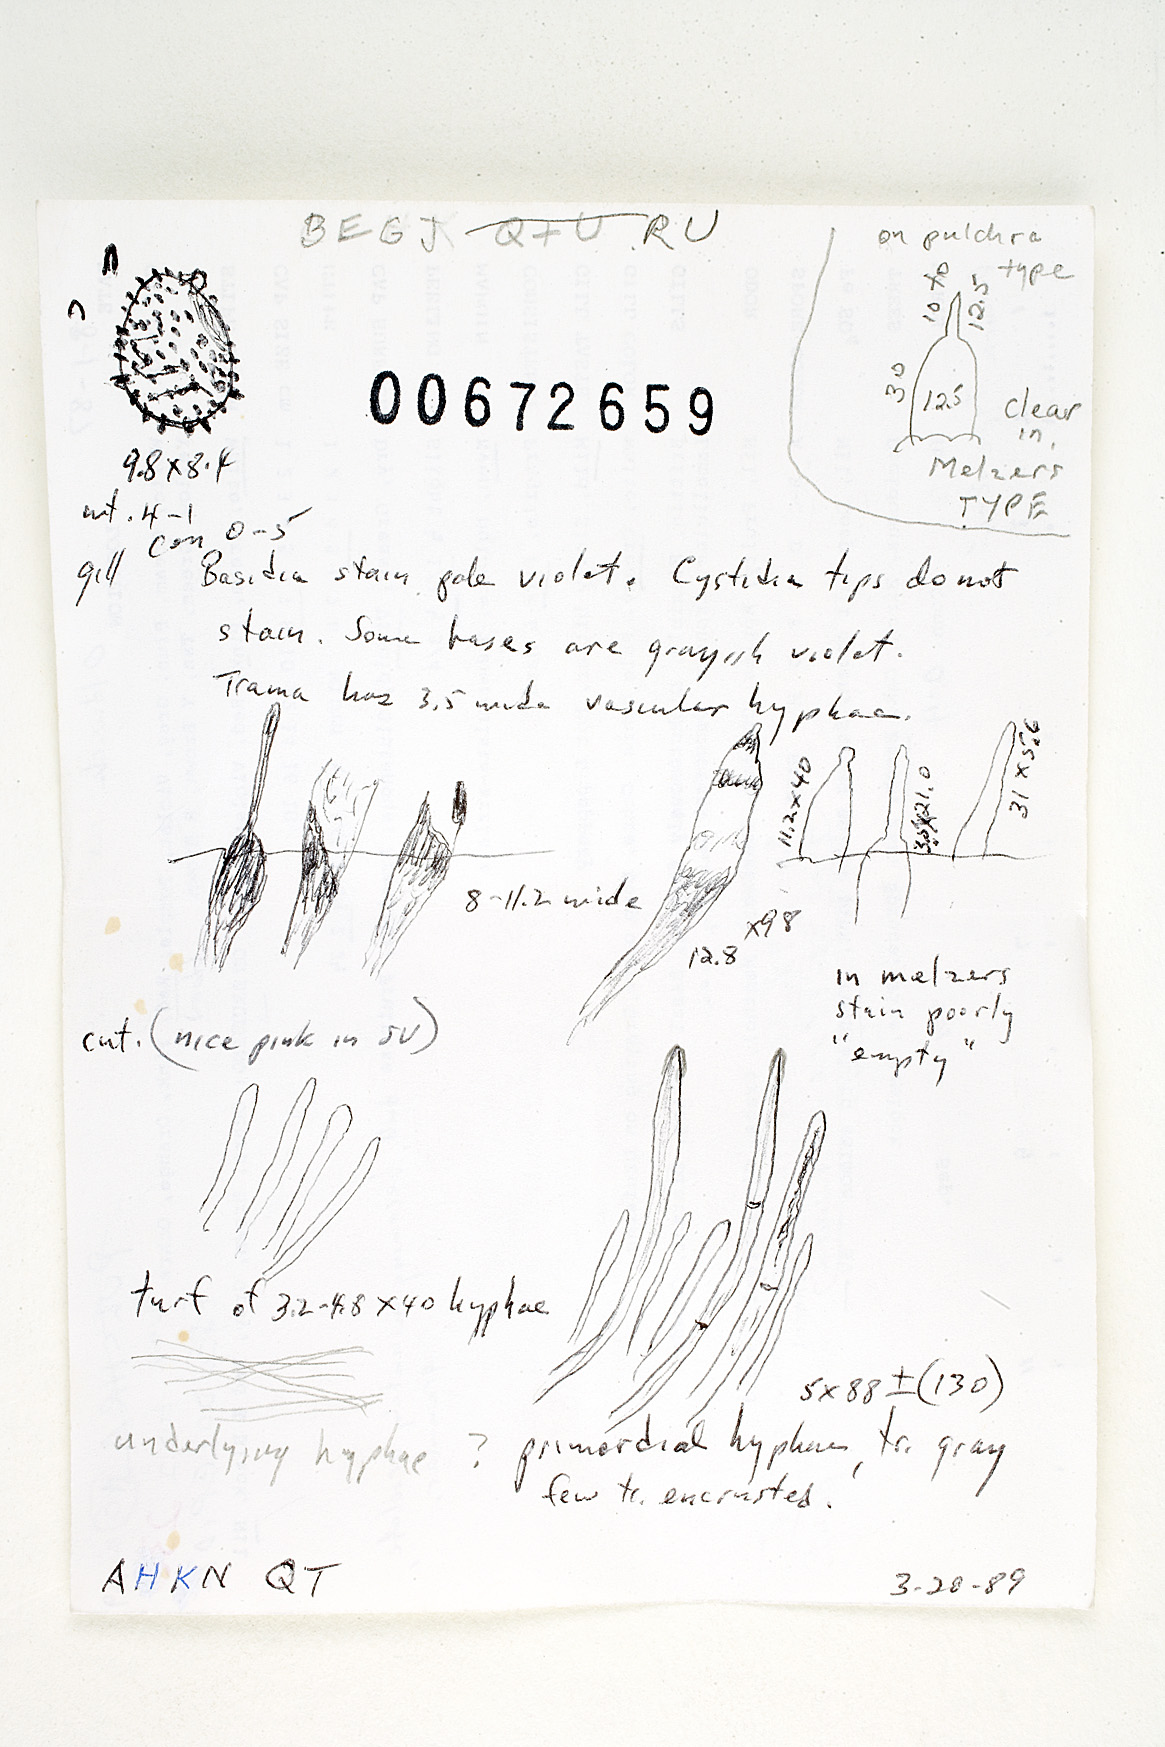 BEGJ QFU RU
on pulchra
type
10 to
12.5
30
12.5
clear
in
Melzers
TYPE
00672659
9.8 x 8.4
4-1
con 0-5
gill Basidia stain pale violet. Cystidia tips do not
stain. Some bases are grayish violet.
Trama has 3.5 wide vascular hyphae.
8-11.2 wide
12.8 x 98
11.2 x 40
31 x 5.6
in melzers
stain poorly
"empty"
cut. (nice pink in SV)
turf of 3.2-4.8 x 40 hyphae
5 x 88 ± (130)
underlying hyphae ? primordial hyphae, tr. gray
few tr. encrusted.
AHKN QT
3-20-89